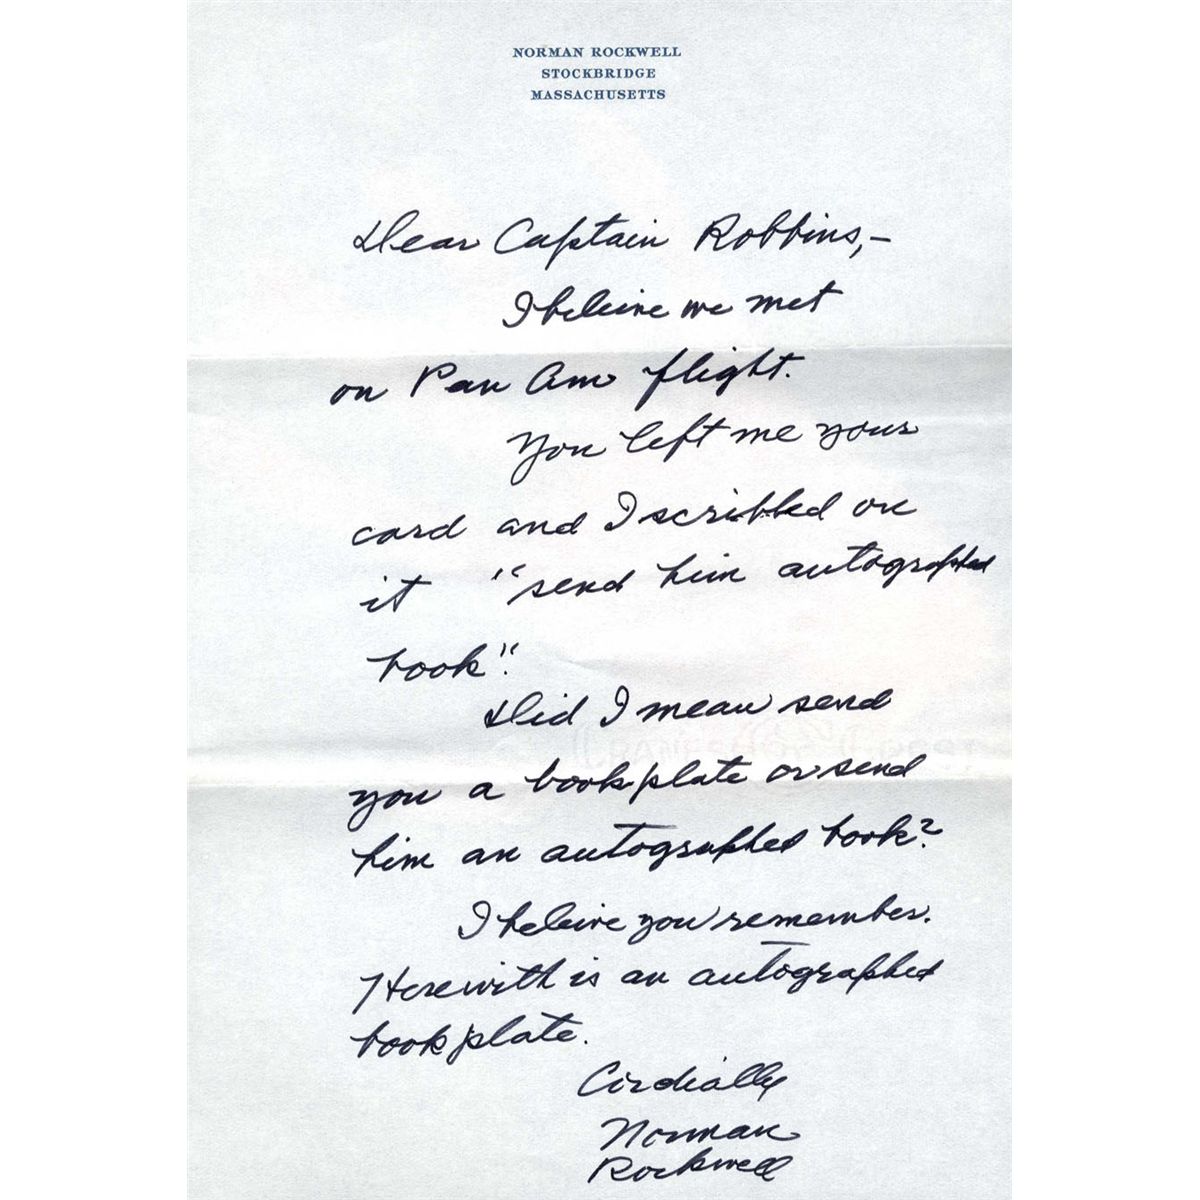 NORMAN ROCKWELL
STOCKBRIDGE
MASSACHUSETTS
Dear Captain Robbins,–
I beleive we met
on Pan Am flight.
You left me your
card and I scribbled on
it "send him autographed
book".
Did I mean send
you a bookplate or send
him an autographed book?
I beleive you remember.
Herewith is an autographed
bookplate.
Cordially
Norman
Rockwell